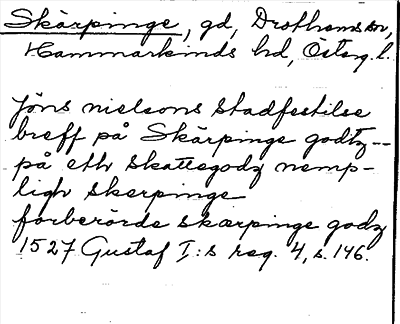 Skärpinge, gd, Drothems sn,
Hammarkinds hd, Österg. l.
Jöns nielsons stadfestilse
breff på Skärpinge godtz --
på eth skattegodz nemp-
ligh skerpinge
förberörde skærpinge godz
1527 Gustaf I:s reg. 4, s. 146.